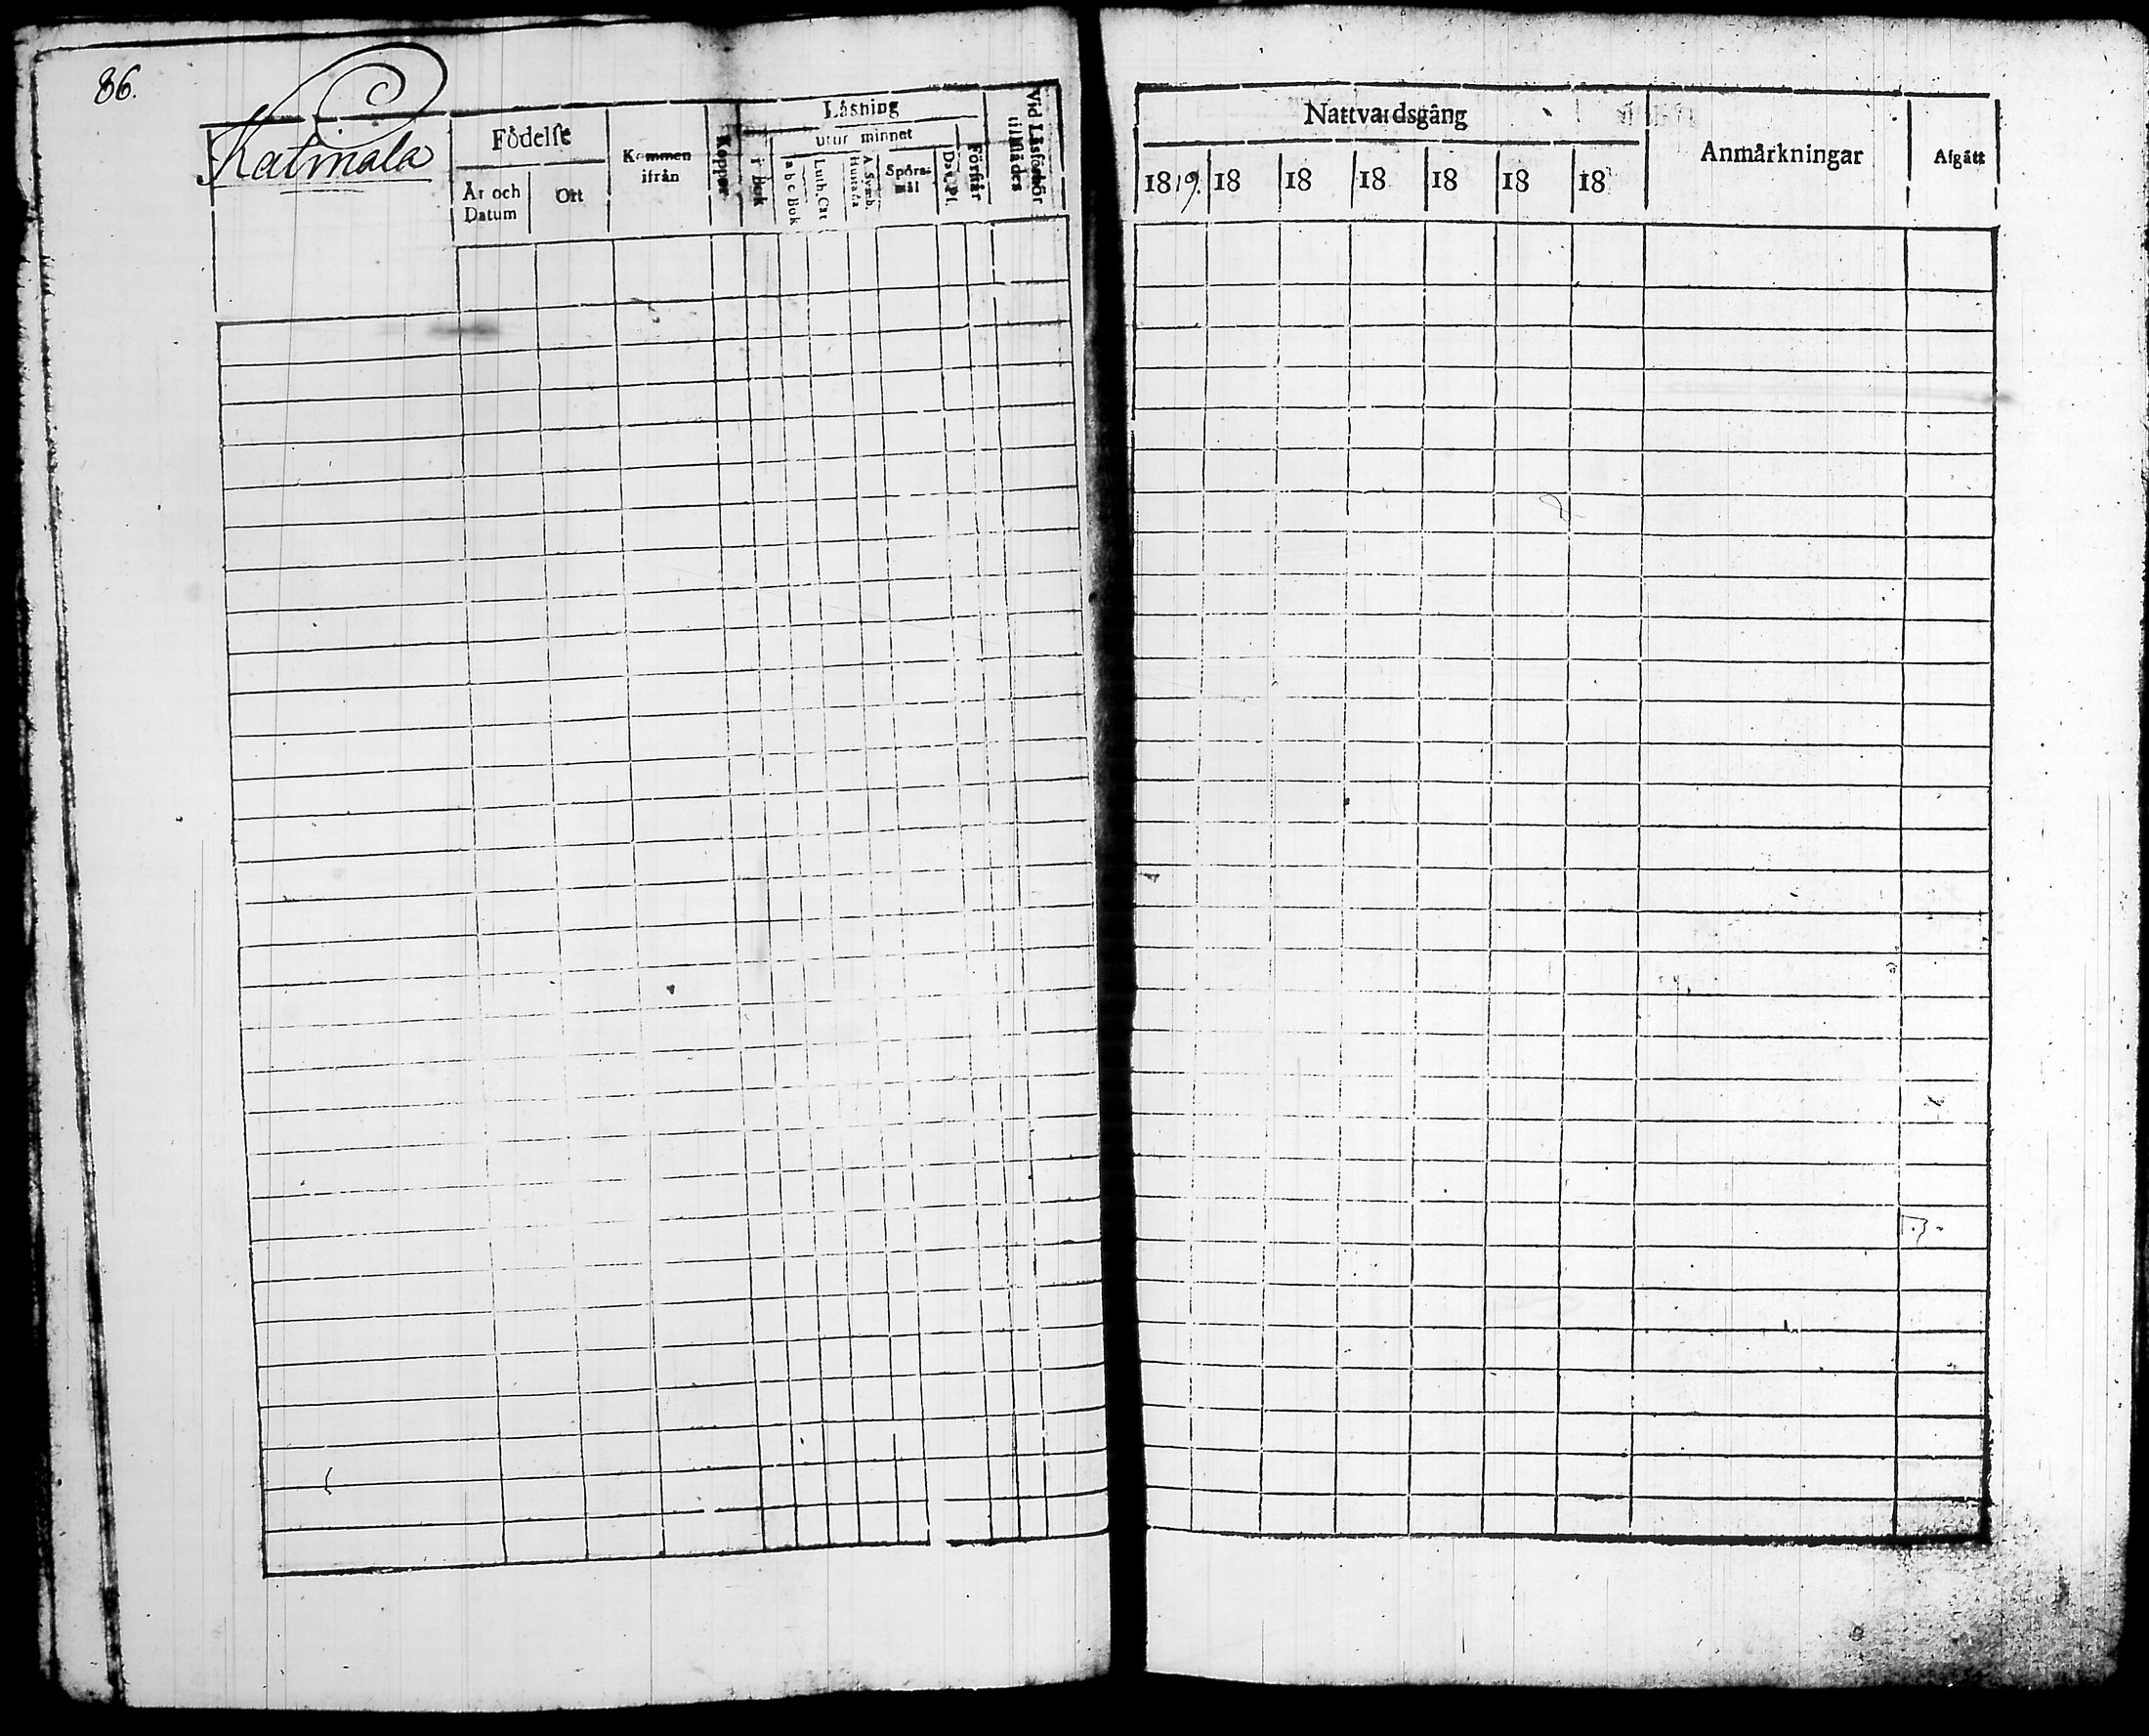 86.
Katmala
Födelse
År och Datum
Ort
Kommen ifrån
Koppor
Läsning
i Bok
utur minnet
a b c Bok
Luth. Cat
A. Symb. Hustafla
Spörsmål
Dav. Ps.
Förstår
Vid Läsförhör tillstädes
Nattvardsgång
1819.
18
18
18
18
18
18
Anmärkningar
Afgått